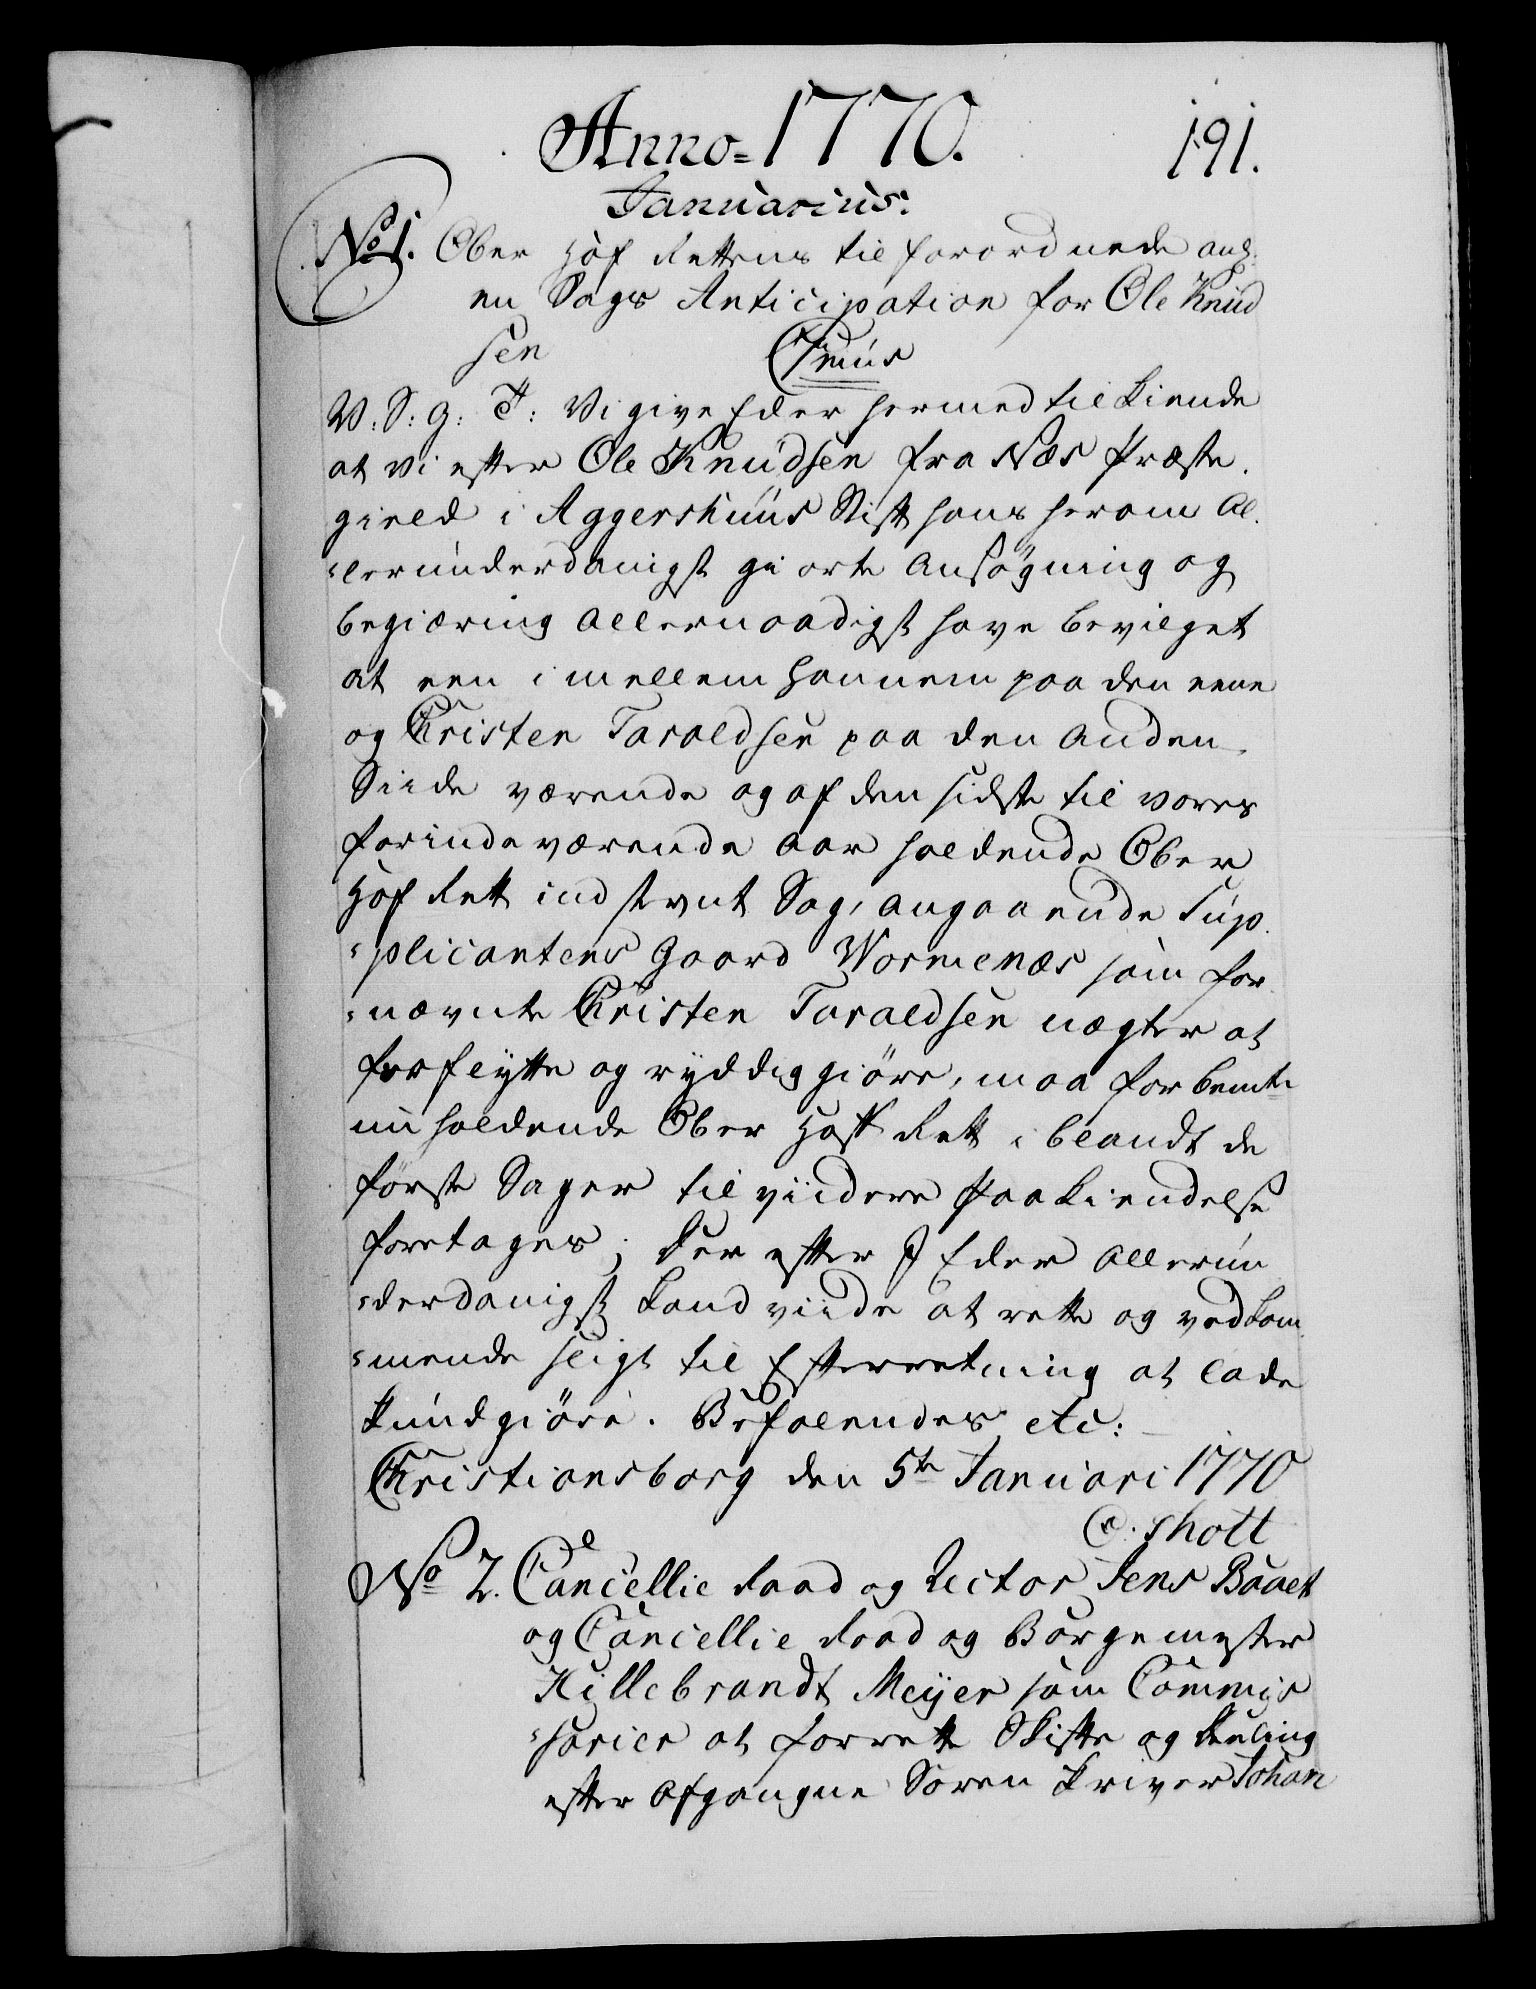 Anno=1770.
191.
Januarius.
No 1. Ober Hof Rettens tilforordnede ang:
en Sags Anticipation for Ole Knud
sen
V: S: G: T: Vi give Eder hermed til kiende
at vi efter Ole Knudsen fra Næs Præste-
gield i Aggershuus Stift hans herom Al-
lerunderdanigst giorte Ansøgning og
begiæring Allernaadigst have bevilget
at een imellem hannem paa den eene
og Christen Taraldsen paa den anden
Siide værende og af den sidste til vores
forindeværende Aar holdende Ober
Hof Rett indstevnt Sag, angaaende Sup-
plicantens Gaard Wormenæs som for-
nævnte Christen Taraldsen nægter at
forflytte og ryddiggiøre, maa for bemte
nu holdende Ober Hoff Rett iblandt de
første Sager til viidere Paakiendelse
foretages; Der efter I Eder allerun-
derdanigst kand viide at rette og vedkom-
mende sligt til Efterretning at lade
kundgiøre. Befalendes etc:
Christiansborg den 5te Januari 1770
O. Thott
No 2. Cancellie Raad og Rector Jens Boaet
og Cancellie Raad og Borgemester
Hillebrandt Meyer som Commis-
sarier at forrette Skifte og Deeling
efter afgangne Soren Skriver Johan